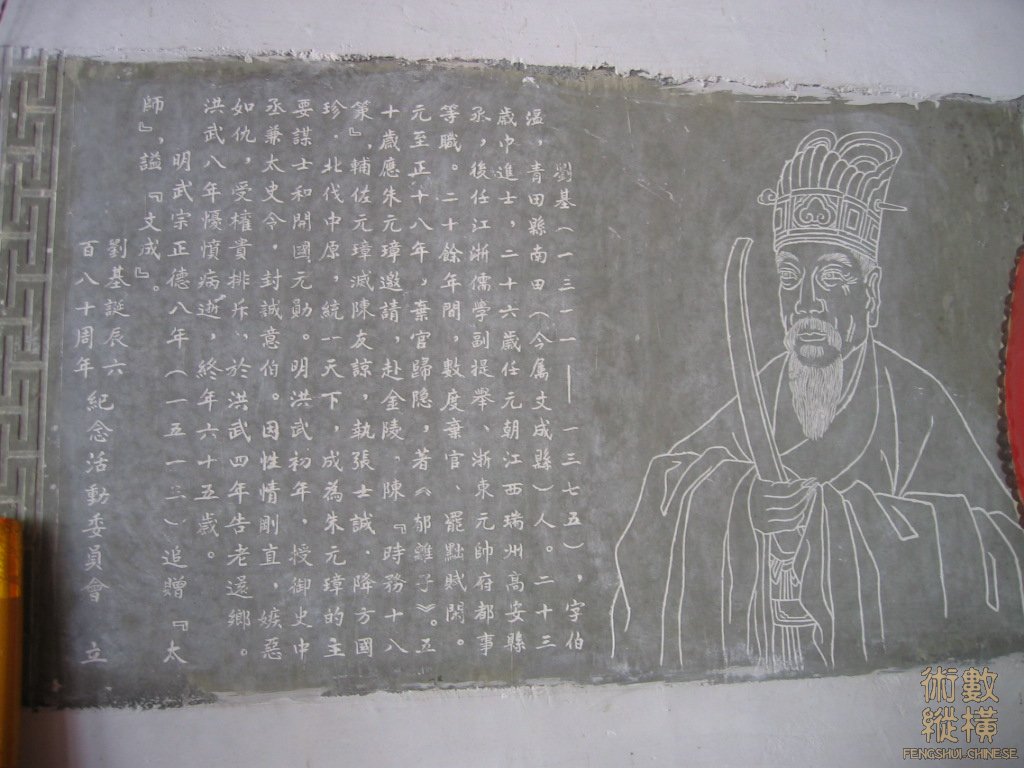 劉基（一三一一——一三七五），字伯
溫，青田縣南田（今屬文成縣）人。二十三
歲中進士，二十六歲任元朝江西瑞州高安縣
丞，後任江浙儒學副提舉、浙東元帥府都事
等職。二十餘年間，數度棄官、罷黜賦閑。
元至正十八年，棄官歸隐，著《郁離子》。五
十歲應朱元璋邀請，赴金陵，陳『時務十八
策』，輔佐元璋滅陳友諒，執張士誠，降方國
珍，北伐中原，統一天下，成為朱元璋的主
要謀士和開國元勛。明洪武初年，授御史中
丞兼太史令，封誠意伯。因性情剛直，嫉惡
如仇，受權貴排斥，於洪武四年告老還鄉。
洪武八年憂憤病逝，終年六十五歲。
明武宗正德八年（一五一三）追贈『太
師』，謚『文成』。
劉基誕辰六
百八十周年 紀念活動委員會 立
術數
縱橫
FENGSHUI-CHINESE